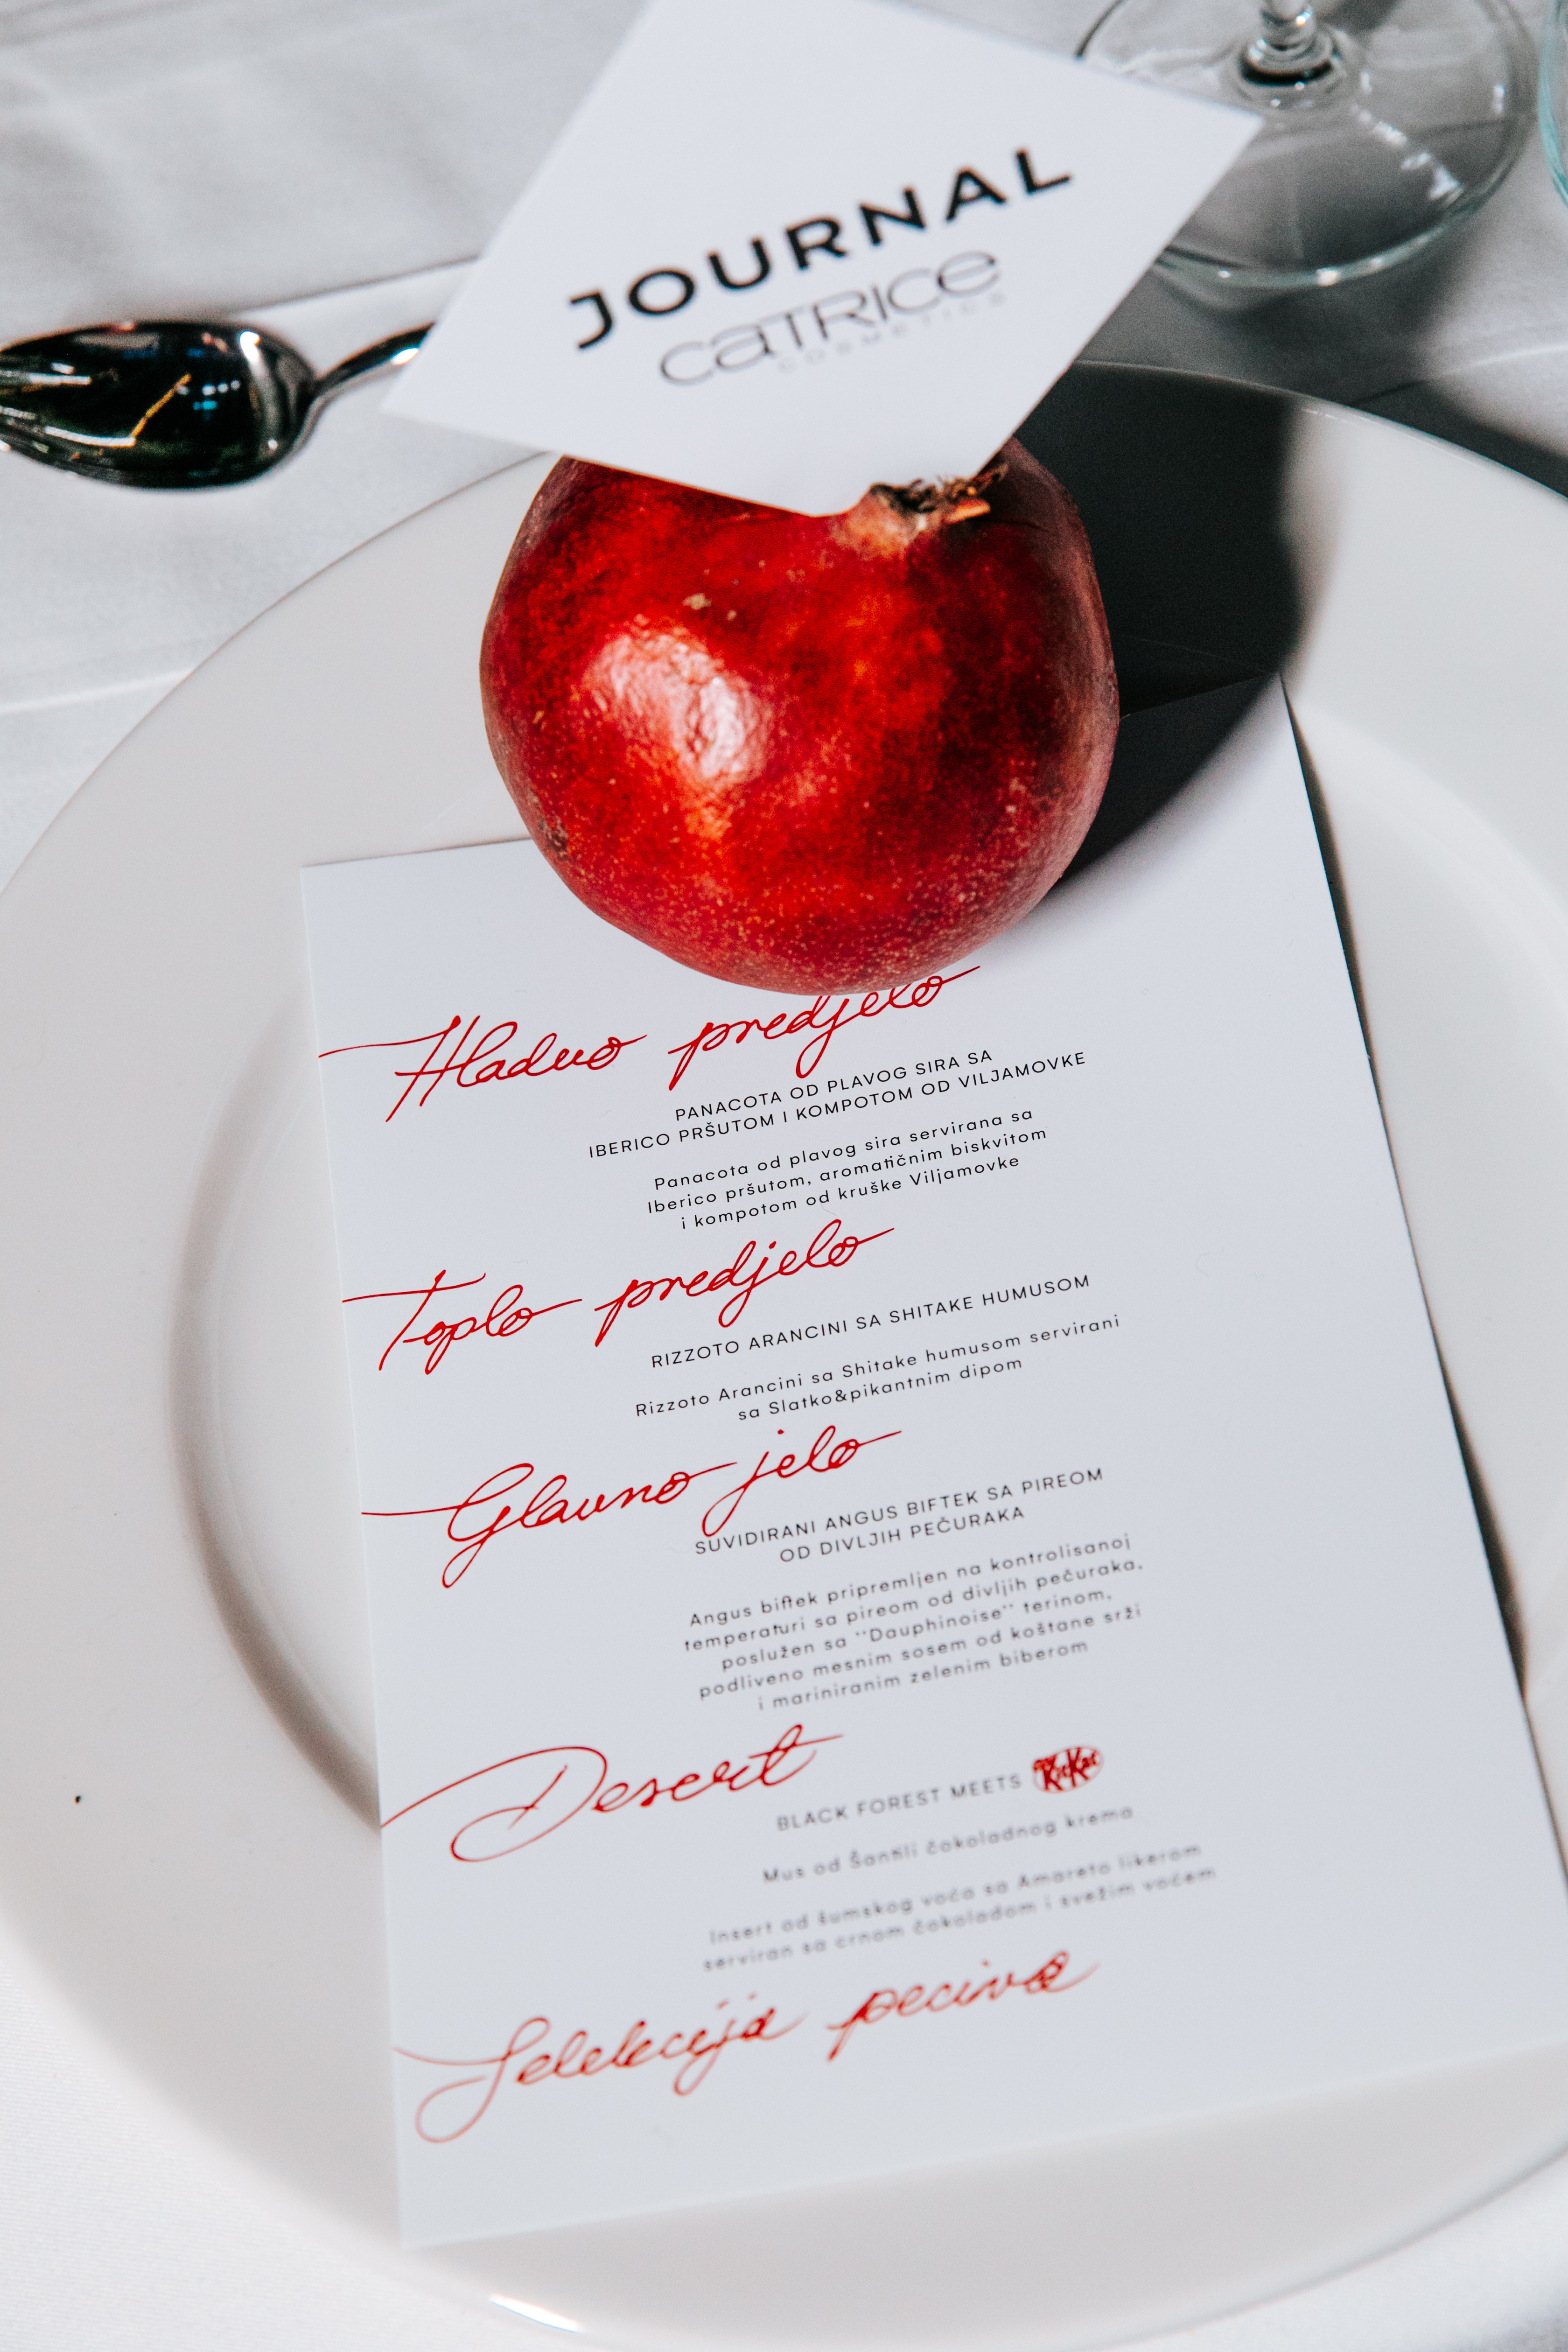 JOURNAL
CATRICE
COSMETICS
Hladno predjelo
PANACOTA OD PLAVOG SIRA SA
IBERICO PRŠUTOM I KOMPOTOM OD VILJAMOVKE
Panacota od plavog sira servirana sa
Iberico pršutom, aromatičnim biskvitom
i kompotom od kruške Viljamovke
Toplo predjelo
RIZZOTO ARANCINI SA SHITAKE HUMUSOM
Rizzoto Arancini sa Shitake humusom servirani
sa Slatko&pikantnim dipom
Glavno jelo
SUVIDIRANI ANGUS BIFTEK SA PIREOM
OD DIVLJIH PEČURAKA
Angus biftek pripremljen na kontrolisanoj
temperaturi sa pireom od divljih pečuraka,
poslužen sa ''Dauphinoise'' terinom,
podliveno mesnim sosem od koštane srži
i mariniranim zelenim biberom
Desert
BLACK FOREST MEETS KitKat
Mus od Šantili čokoladnog krema
Insert od šumskog voća sa Amareto likerom
serviran sa crnom čokoladom i svežim voćem
Selekcija peciva